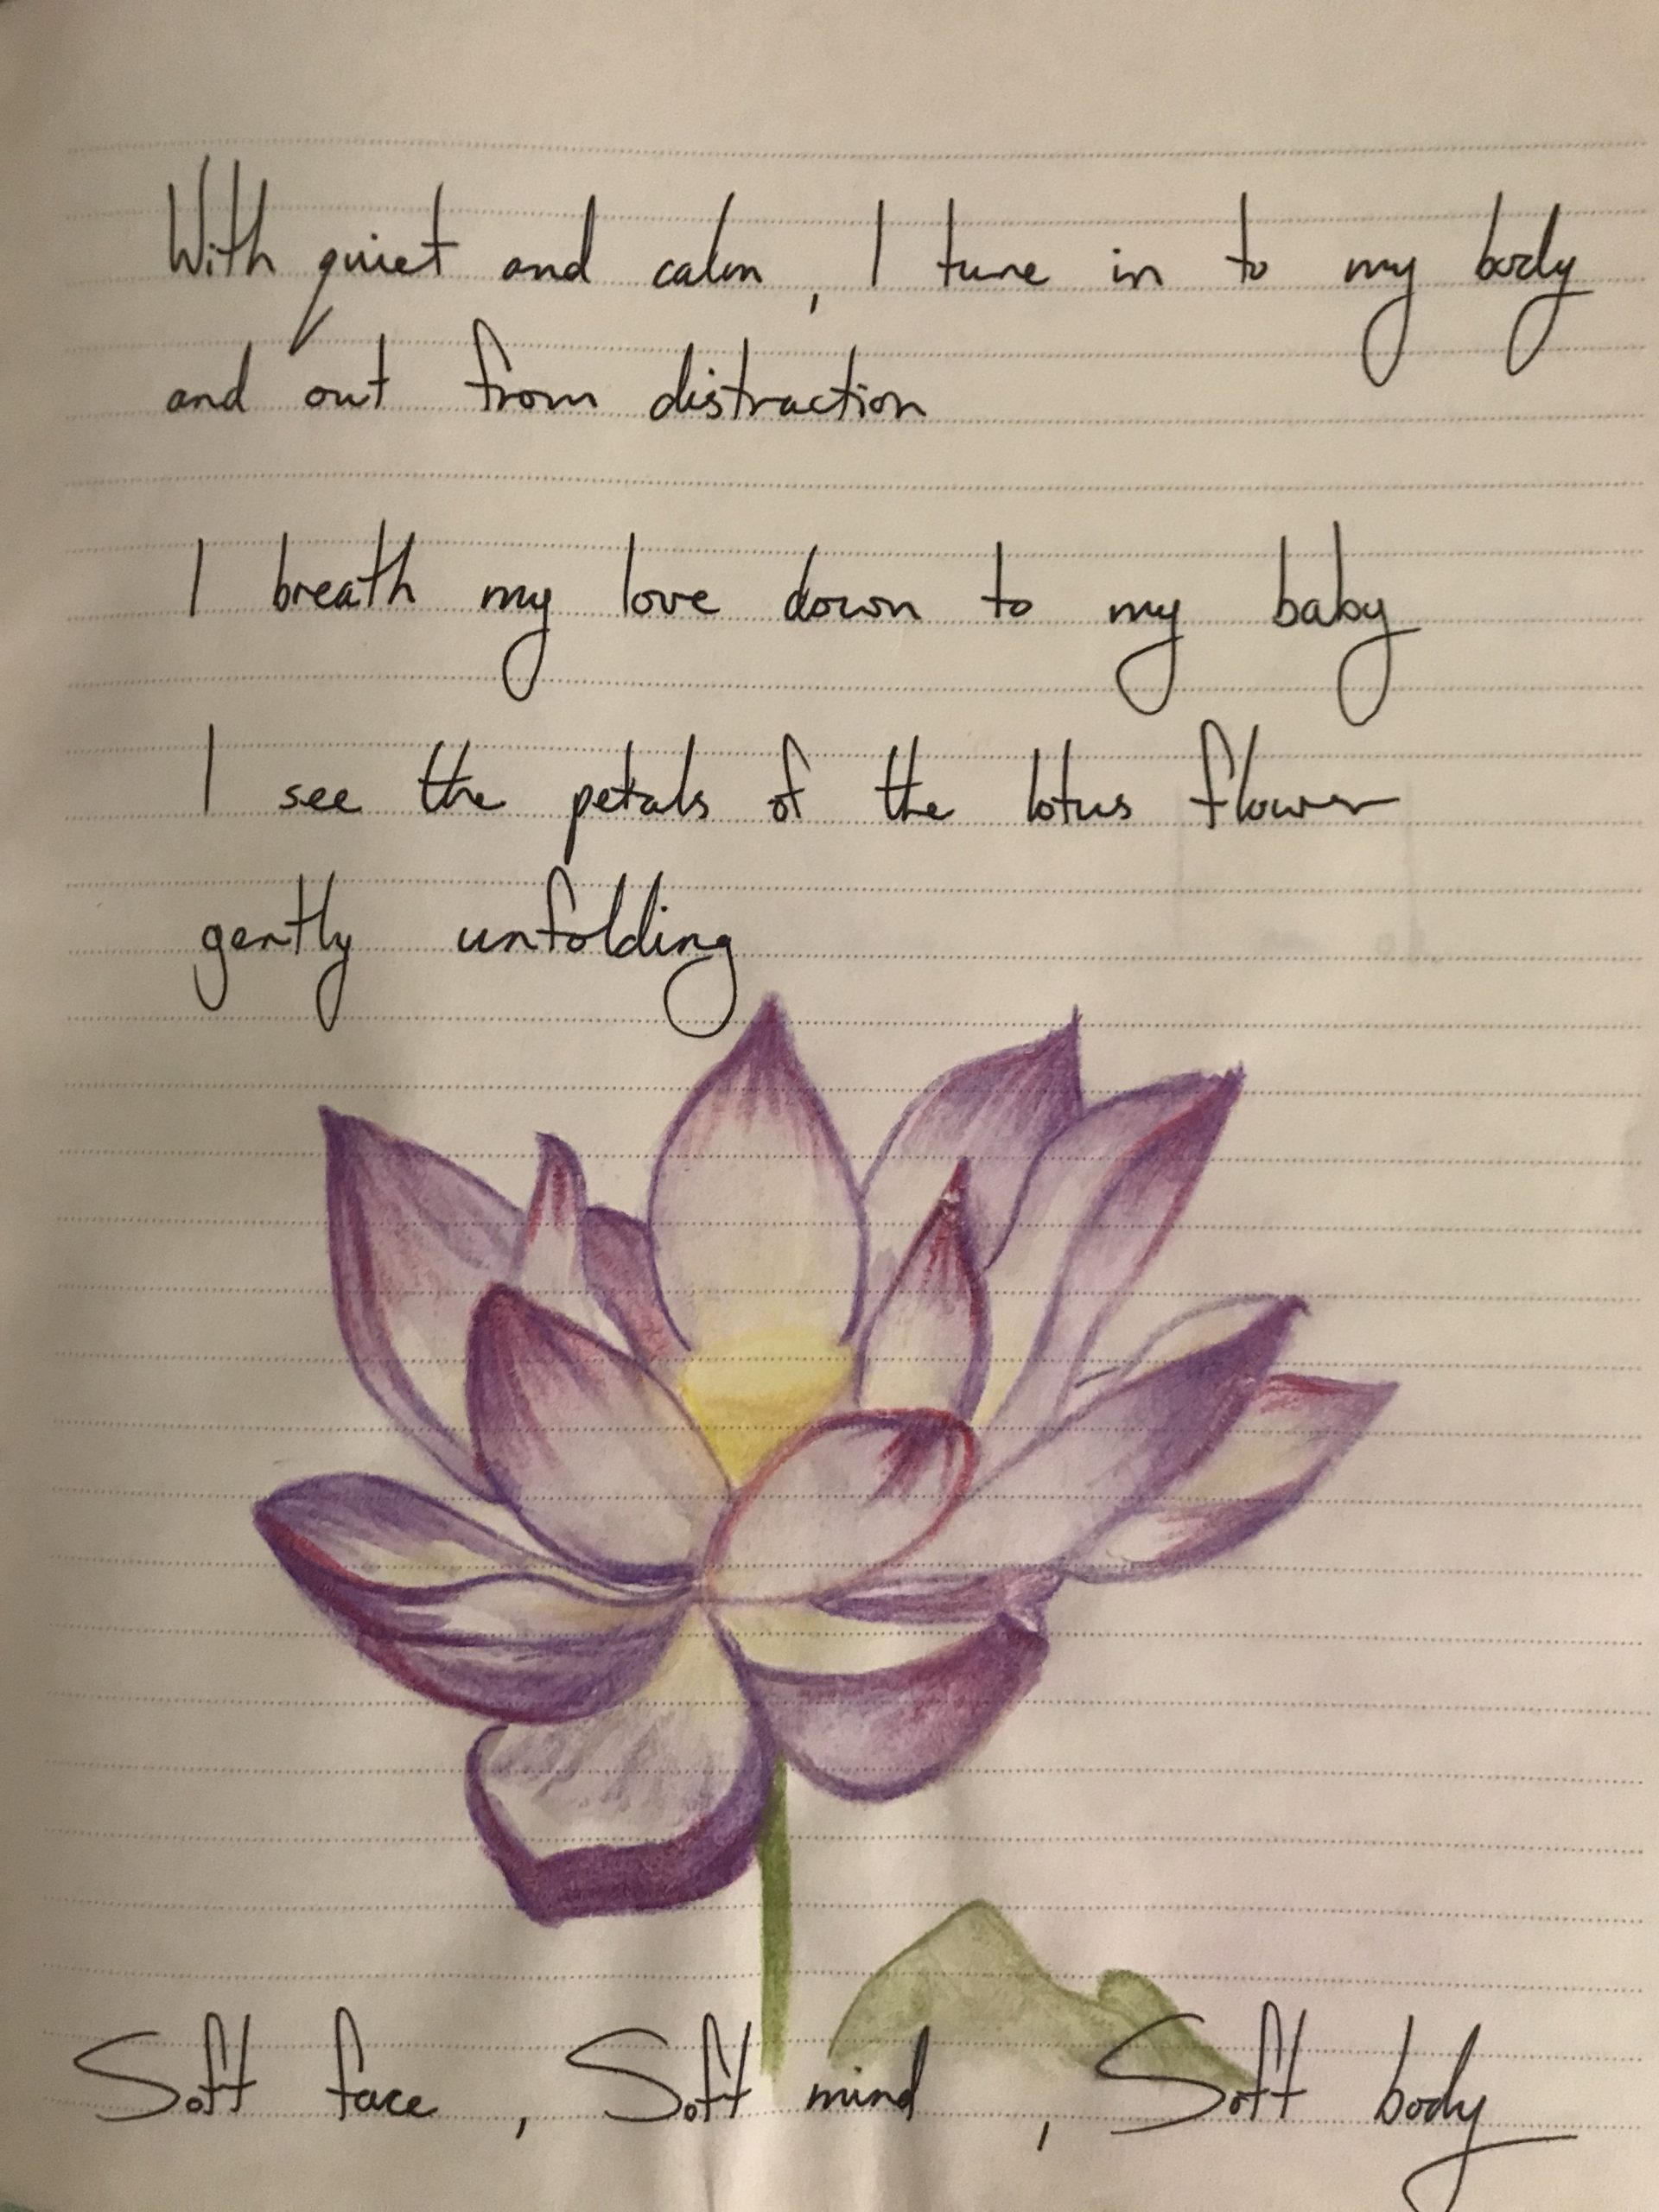 With quiet and calm, I tune in to my body
and out from distraction
I breath my love down to my baby
I see the petals of the lotus flower
gently unfolding
Soft face, Soft mind, Soft body